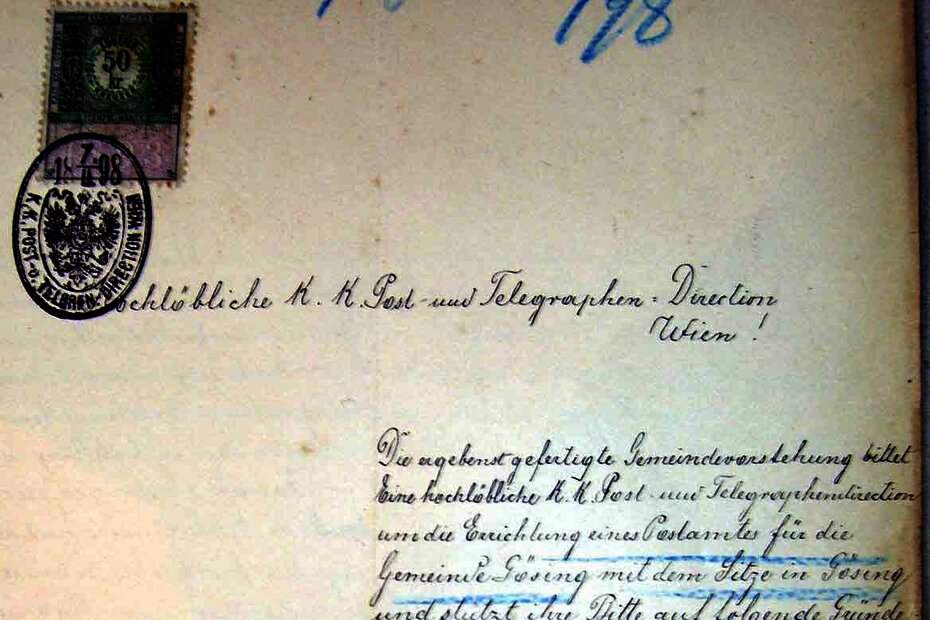 198
50
kr
18 7/4 98
K.K. POST- u. TELEGRAFEN-DIRECTION WIEN
Hochlöbliche K. K. Post- und Telegraphen = Direction
Wien !
Die ergebenst gefertigte Gemeindevorstehung bittet
Eine hochlöbliche K. K. Post- und Telegraphendirection
um die Errichtung eines Postamtes für die
Gemeinde Gösing mit dem Sitze in Gösing
und stützt ihre Bitte auf folgende Gründe